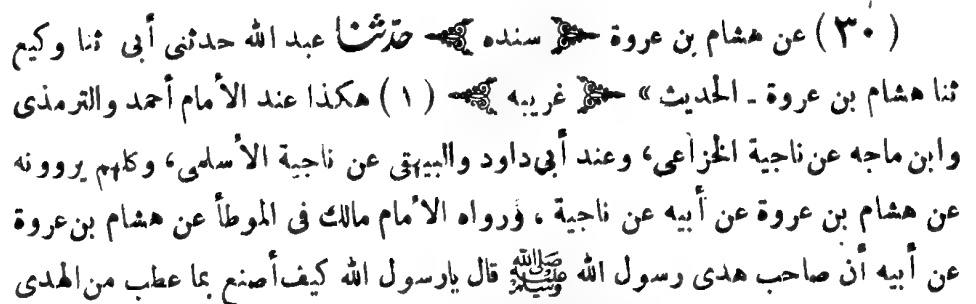 ( ٣٠ ) عن هشام بن عروة ﴿ سنده ﴾ حدثنا عبد الله حدثنى أبى ثنا وكيع
ثنا هشام بن عروة ـ الحديث » ﴿ غريبه ﴾ ( ١ ) هكذا عند الأمام أحمد والترمذى
وابن ماجه عن ناجية الخزاعى، وعند أبى داود والبيهقى عن ناجية الأسلمى، وكلهم يروونه
عن هشام بن عروة عن أبيه عن ناجية ، ورواه الامام مالك فى الموطأ عن هشام بن عروة
عن أبيه أن صاحب هدى رسول الله ﷺ قال يارسول الله كيف أصنع بما عطب من الهدى